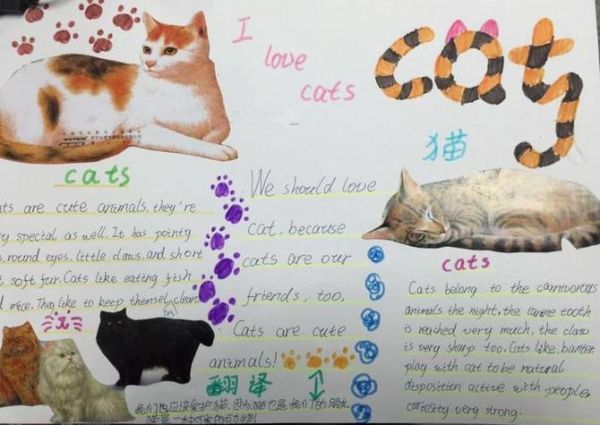 I
love
cats
cats
猫
cats
ts are cute animals, they're
y special as well. It has pointy
s, round eyes, little claws, and short
soft fur. Cats like eating fish
mice. They like to keep themselv clean
We should love
cat, because
cats are our
friends, too.
Cats are cute
animals!
翻译
我们也应该爱护猫,因为猫也是我们的朋友,
cats
Cats belong to the carnivorous
animals the night, the canine tooth
is reached very much, the claw
is very sharp too. Cats like, banter,
play with cat to be natural
disposition active with people,
curiosity very strong.